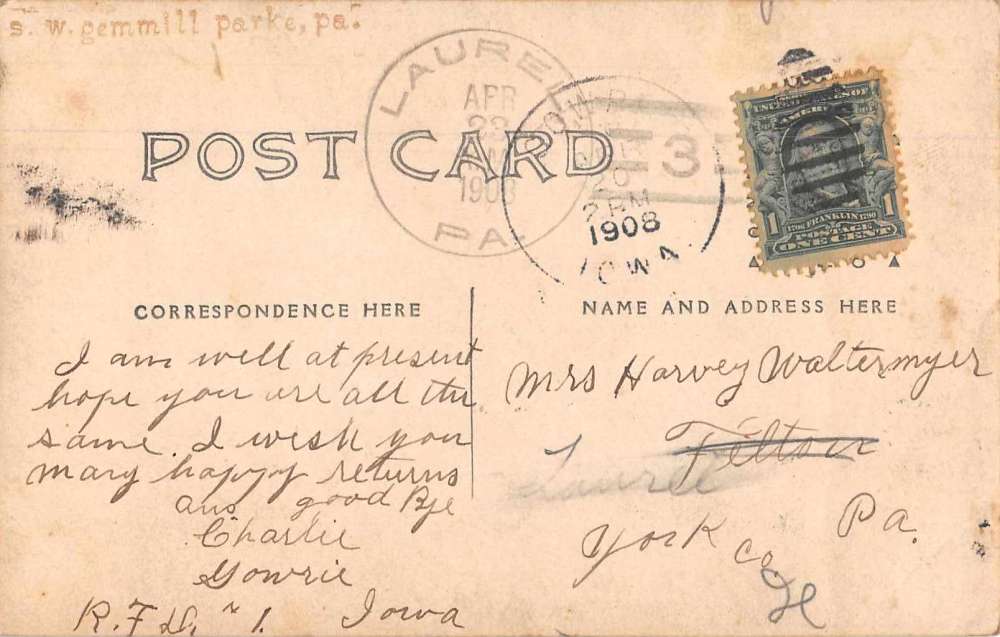 s. w. gemmill parke, pa.
LAUREL
APR
23
1908
PA.
GOWRIE
20
2 PM
1908
IOWA
3
POST CARD
UNITED STATES OF
AMERICA
1
1706 FRANKLIN 1790
POSTAGE
ONE CENT
CORRESPONDENCE HERE
I am well at present
hope you are all the
same. I wish you
many happy returns
ans good Bye
Charlie
Gowrie
R.F.D. 1. Iowa
NAME AND ADDRESS HERE
Mrs Harvey Waltermyer
Felton
Laurel
York Co. Pa.